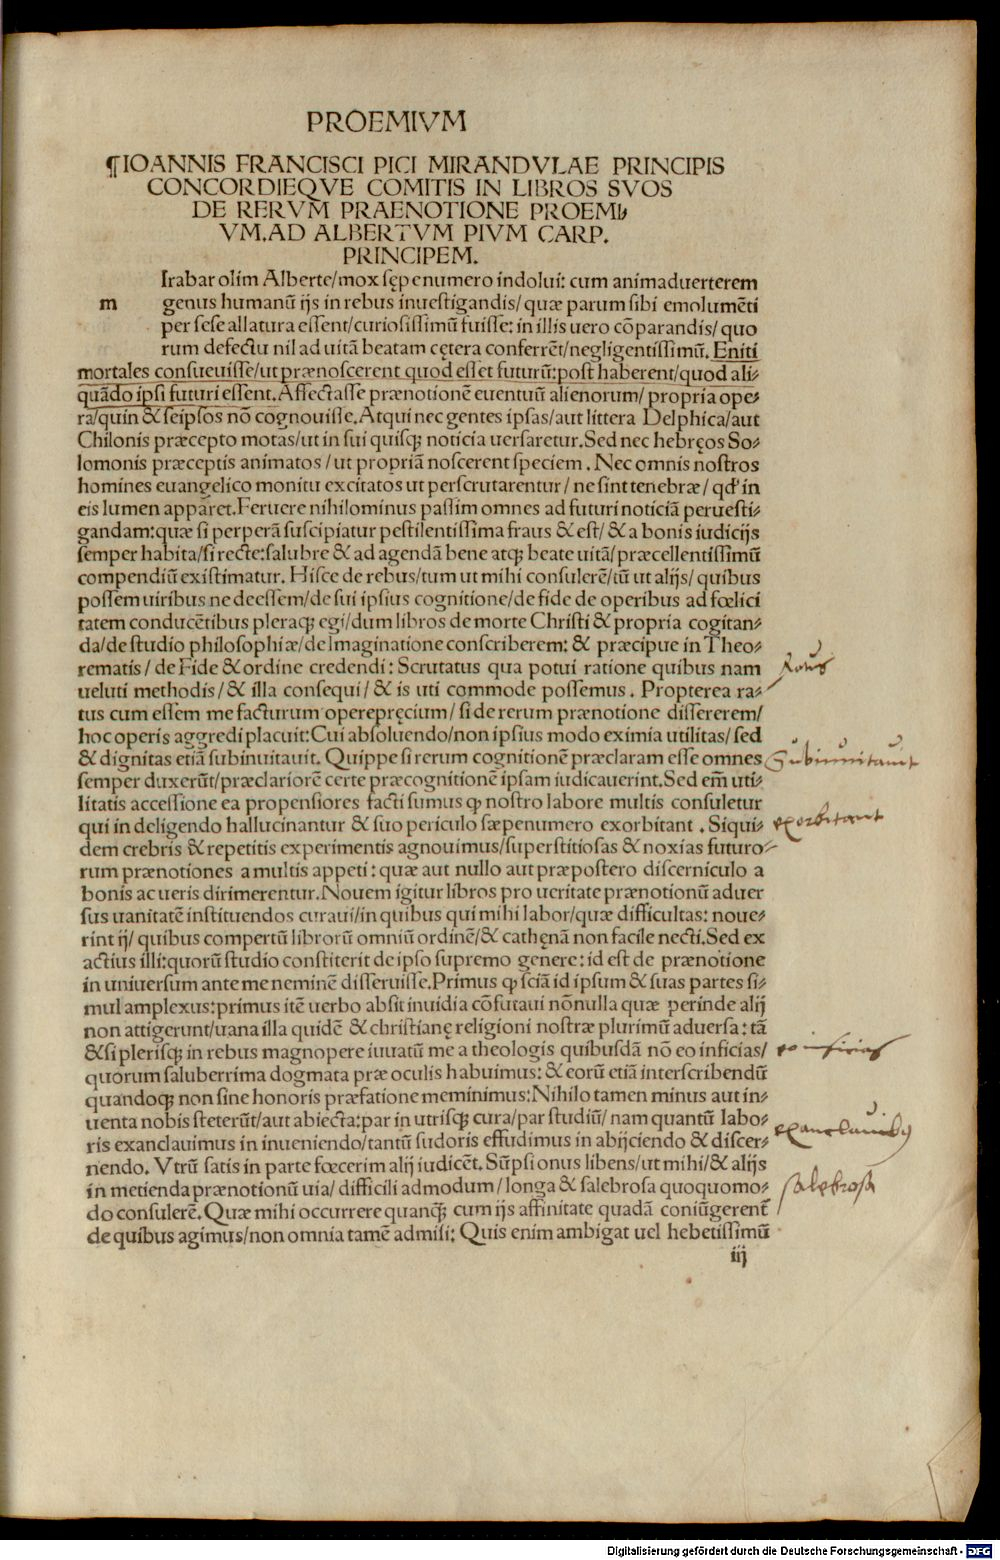 PROEMIVM
¶IOANNIS FRANCISCI PICI MIRANDVLAE PRINCIPIS
CONCORDIEQVE COMITIS IN LIBROS SVOS
DE RERVM PRAENOTIONE PROEMI⸗
VM.AD ALBERTVM PIVM CARP.
PRINCIPEM.
Irabar olim Alberte/mox sępenumero indolui: cum animaduerterem
m genus humanū ijs in rebus inuestigandis/quæ parum sibi emolumēti
per sese allatura essent/curiosissimū fuisse: in illis uero cōparandis/quo
rum defectu nil ad uitā beatam cętera conferrēt/negligentissimū. Eniti
mortales consueuisse/ut prænoscerent quod esset futurū: post haberent/quod ali⸗
quādo ipsi futuri essent. Affectasse prænotionē euentuū alienorum/propria ope⸗
ra/quin & seipsos nō cognouisse. Atqui nec gentes ipsas/aut littera Delphica/aut
Chilonis præcepto motas/ut in sui quisqꝫ noticia uersaretur. Sed nec hebręos So⸗
lomonis præceptis animatos/ut propriā noscerent speciem. Nec omnis nostros
homines euangelico monitu excitatos ut perscrutarentur/ne sint tenebræ/qd' in
eis lumen apparet. Feruere nihilominus passim omnes ad futuri noticiā peruesti⸗
gandam: quæ si perperā suscipiatur pestilentissima fraus & est/& a bonis iudicijs
semper habita/si recte: salubre & ad agendā bene atqꝫ beate uitā/præcellentissimū
compendiū existimatur. Hisce de rebus/tum ut mihi consulerē/tū ut alijs/quibus
possem uiribus ne deessem/de sui ipsius cognitione/de fide de operibus ad fœlici
tatem conducētibus pleraqꝫ egi/dum libros de morte Christi & propria cogitan⸗
da/de studio philosophiæ/de Imaginatione conscriberem: & præcipue in Theo⸗
rematis/de Fide & ordine credendi: Scrutatus qua potui ratione quibus nam
ueluti methodis/& illa consequi/& is uti commode possemus. Propterea ra⸗
tus cum essem me facturum operepręcium/si de rerum prænotione dissererem/
hoc operis aggredi placuit: Cui absoluendo/non ipsius modo eximia utilitas/sed
& dignitas etiā subinuitauit. Quippe si rerum cognitionē præclaram esse omnes
semper duxerūt/præclariorē certe præcognitionē ipsam iudicauerint. Sed em̄ uti⸗
litatis accessione ea propensiores facti sumus ꝙ nostro labore multis consuletur
qui in deligendo hallucinantur & suo periculo sæpenumero exorbitant. Siqui⸗
dem crebris & repetitis experimentis agnouimus/superstitiosas & noxias futuro⸗
rum prænotiones a multis appeti: quæ aut nullo aut præpostero discerniculo a
bonis ac ueris dirimerentur. Nouem igitur libros pro ueritate prænotionū aduer
sus uanitatē instituendos curaui/in quibus qui mihi labor/quæ difficultas: noue⸗
rint ij/quibus compertū librorū omniū ordinē/& cathęnā non facile necti. Sed ex
actius illi: quorū studio constiterit de ipso supremo genere: id est de prænotione
in uniuersum ante me neminē disseruisse. Primus ꝙ sciā id ipsum & suas partes si⸗
mul amplexus: primus itē uerbo absit inuidia cōfutaui nōnulla quæ perinde alij
non attigerunt/uana illa quidē & christianę religioni nostræ plurimū aduersa: tā
& si plerisqꝫ in rebus magnopere iuuatū me a theologis quibusdā nō eo inficias/
quorum saluberrima dogmata præ oculis habuimus: & eorū etiā interscribendū
quandoqꝫ non sine honoris præfatione meminimus: Nihilo tamen minus aut in⸗
uenta nobis steterūt/aut abiecta: par in utrisqꝫ cura/par studiū/nam quantū labo⸗
ris exanclauimus in inueniendo/tantū sudoris effudimus in abijciendo & discer⸗
nendo. Vtrū satis in parte fœcerim alij iudicēt. Sūpsi onus libens/ut mihi/& alijs
in metienda prænotionū uia/difficili admodum/longa & salebrosa quoquomo⸗
do consulerē. Quæ mihi occurrere quanqꝫ cum ijs affinitate quadā coniūgerent
de quibus agimus/non omnia tamē admisi: Quis enim ambigat uel hebetissimū
iij
Ratus
Subinuitauit
exorbitant
eo inficias
exanclauibus
salebrosa
Digitalisierung gefördert durch die Deutsche Forschungsgemeinschaft - DFG